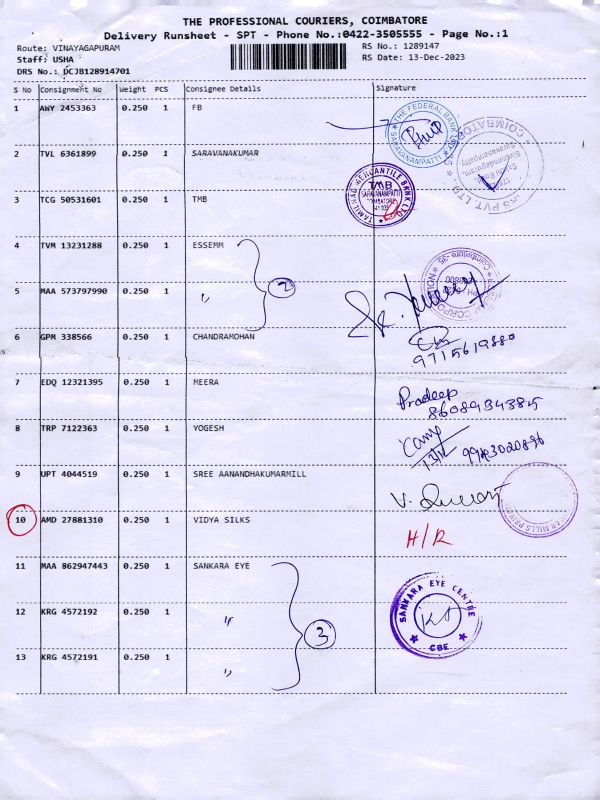 THE PROFESSIONAL COURIERS, COIMBATORE
Delivery Runsheet - SPT - Phone No.:0422-3505555 - Page No.:1
Route: VINAYAGAPURAM
Staff: USHA
DRS No.: DCJB128914701
RS No.: 1289147
RS Date: 13-Dec-2023
S No Consignment No Weight PCS Consignee Details Signature
1 AWY 2453363 0.250 1 FB
THE FEDERAL BANK
SARAVANAMPATTI
2 TVL 6361899 0.250 1 SARAVANAKUMAR
COIMBATORE
PVT LTD
3 TCG 50531601 0.250 1 TMB
TAMILNAD MERCANTILE BANK LTD
TMB
SARAVANAMPATTI
COIMBATORE
4 TVM 13231288 0.250 1 ESSEMM
2
5 MAA 573797990 0.250 1 "
6 GPM 338566 0.250 1 CHANDRAMOHAN
9715619880
7 EDQ 12321395 0.250 1 MEERA
Pradeep
8608934385
8 TRP 7122363 0.250 1 YOGESH
13/12
9 UPT 4044519 0.250 1 SREE AANANDHAKUMARMILL
10 AMD 27881310 0.250 1 VIDYA SILKS
H/R
11 MAA 862947443 0.250 1 SANKARA EYE
SANKARA EYE CENTRE
CBE
12 KRG 4572192 0.250 1 "
3
13 KRG 4572191 0.250 1 "